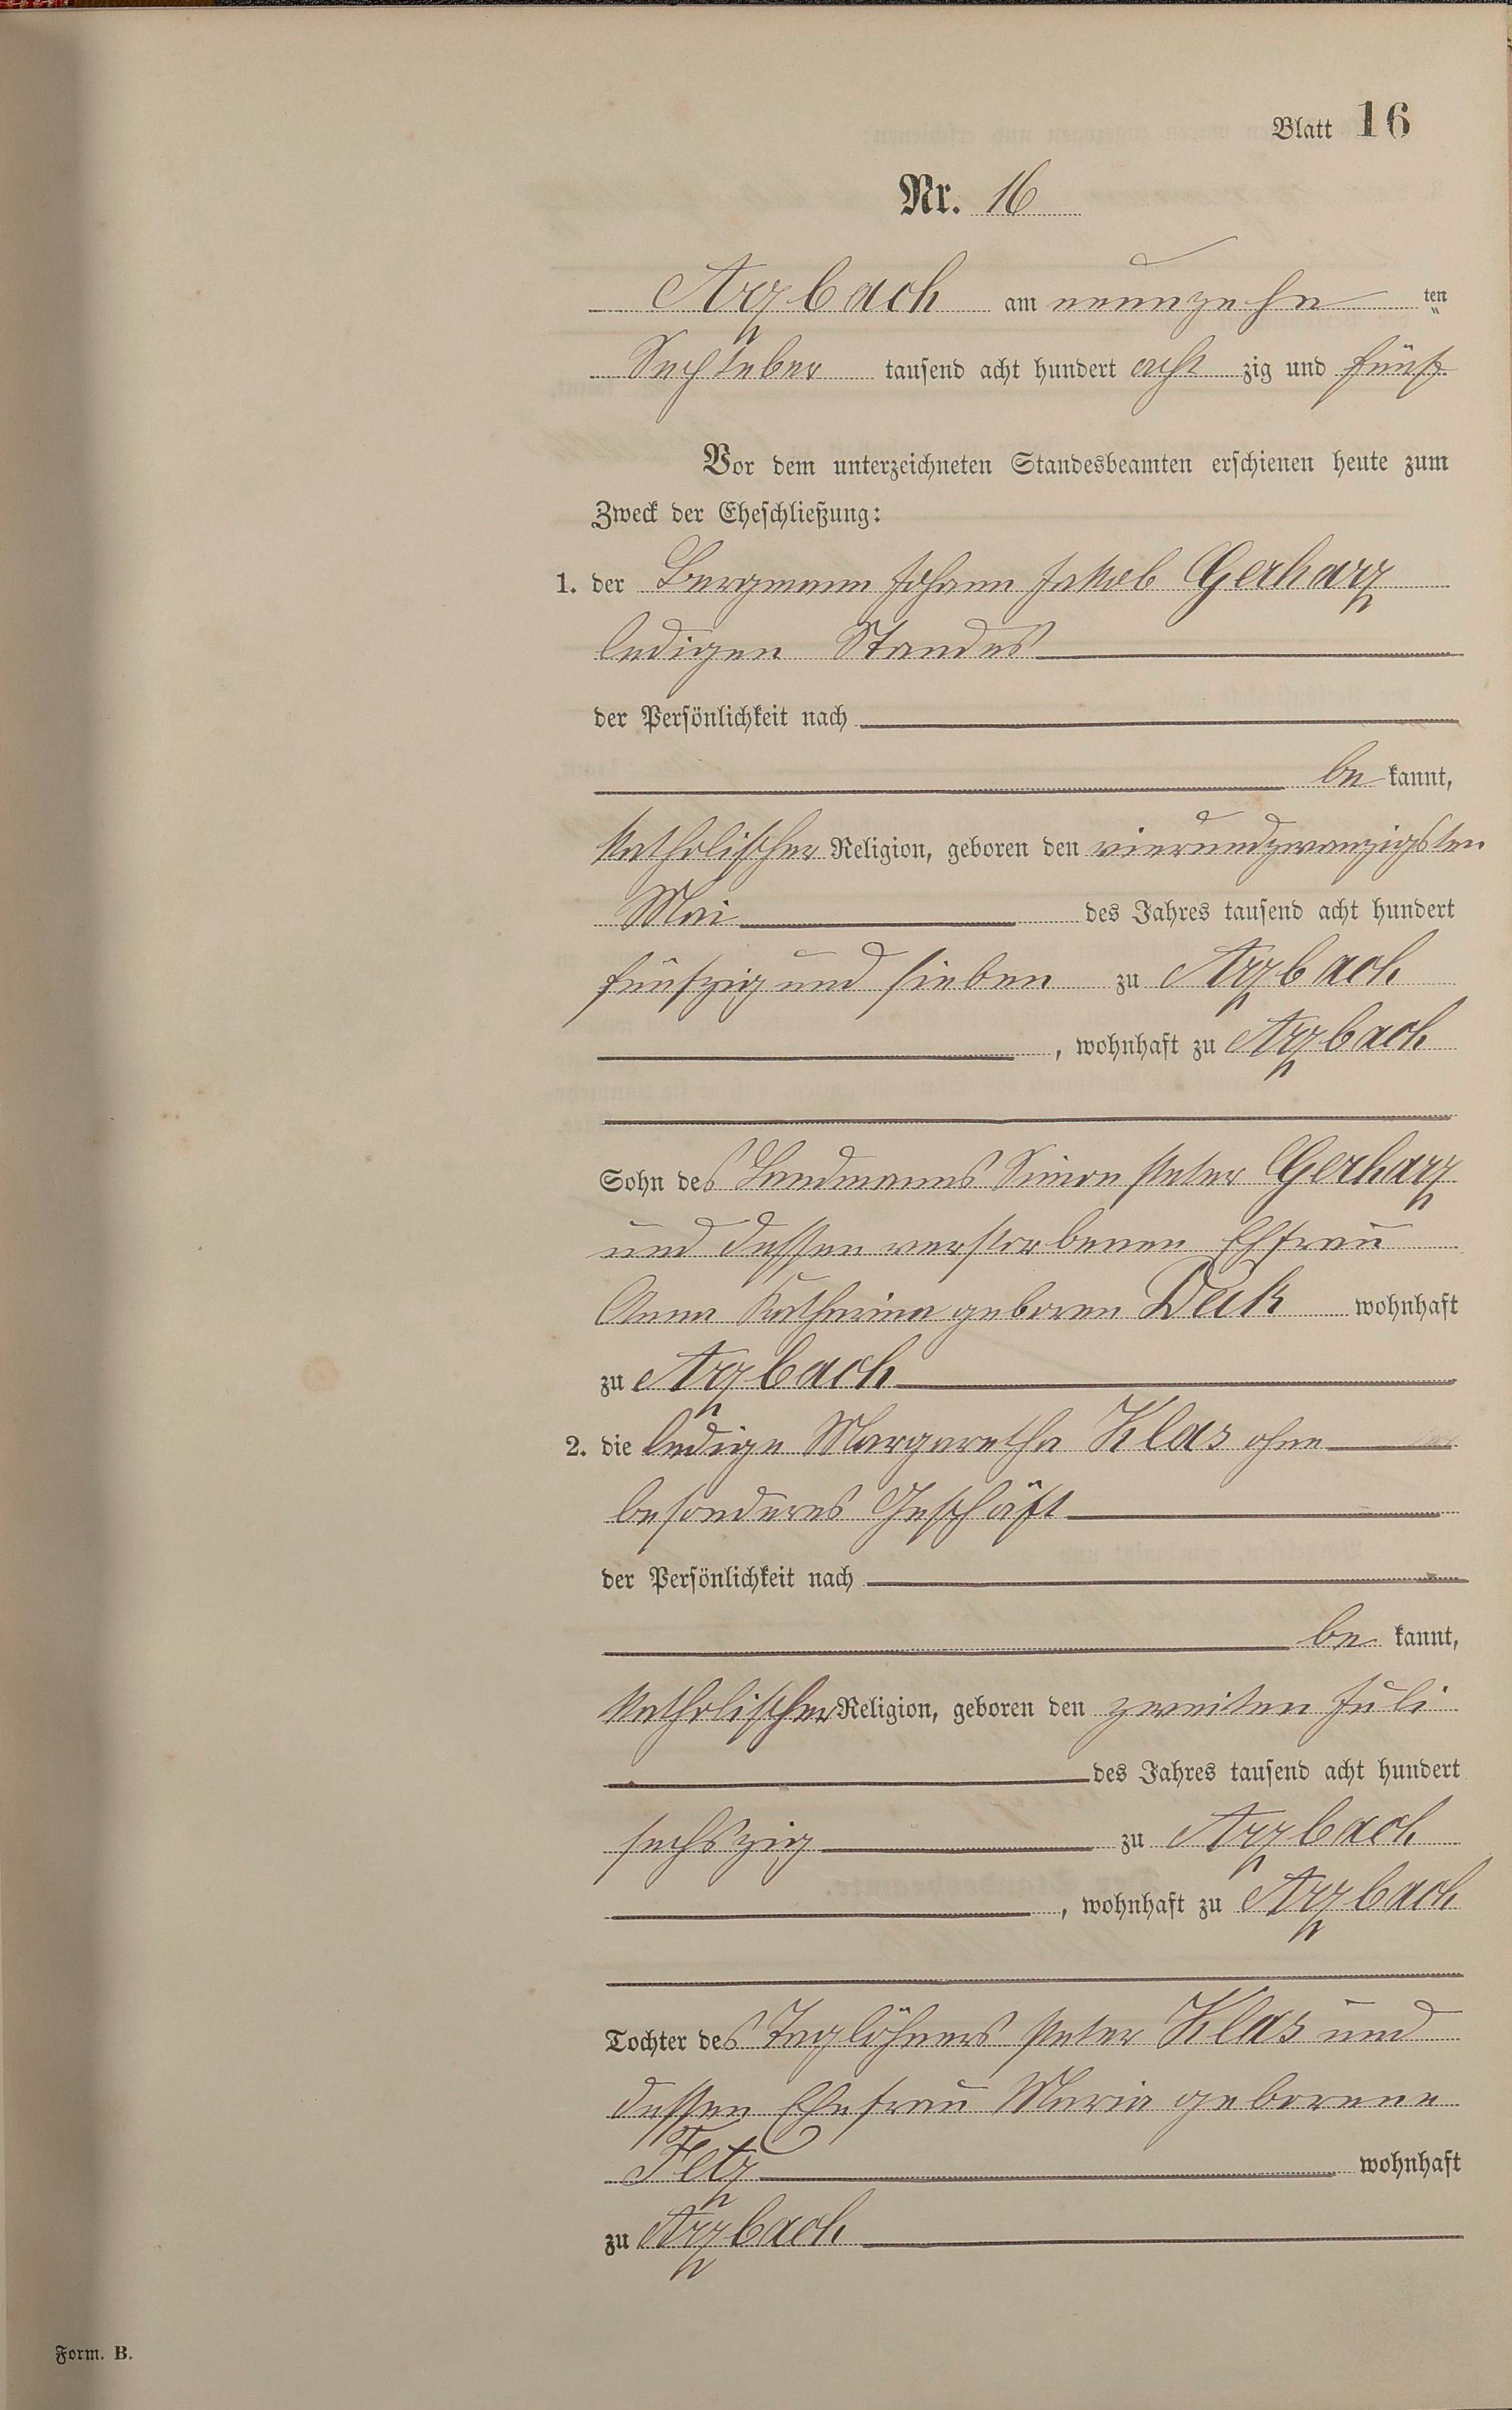 Blatt 16
Nr. 16
Arzbach am neunzehn ten
September tausend acht hundert acht zig und fünf
Vor dem unterzeichneten Standesbeamten erschienen heute zum
Zweck der Eheschließung:
1. der Bergmann Johann Jakob Gerharz
ledigen Standes
der Persönlichkeit nach
be kannt,
katholischer Religion, geboren den vierundzwanzigsten
Mai des Jahres tausend acht hundert
fünfzig und sieben zu Arzbach
, wohnhaft zu Arzbach
Sohn des Landmanns Simon Peter Gerharz
und dessen verstorbenen Ehfrau
Anna Katharina geboren Deck wohnhaft
zu Arzbach
2. die ledige Margaretha Klas ohne
besonderes Geschäft
der Persönlichkeit nach
be kannt,
katholischer Religion, geboren den zweiten Juli
des Jahres tausend acht hundert
sechszig zu Arzbach
, wohnhaft zu Arzbach
Tochter des Taglöhners Peter Klas und
dessen Ehefrau Maria geborene
Fetz wohnhaft
zu Arzbach
Form. B.